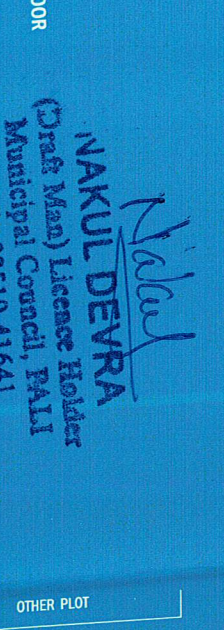 OOR
Nakul
NAKUL DEVRA
(Draft Man) Licence Holder
Municipal Council, PALI
41641
OTHER PLOT